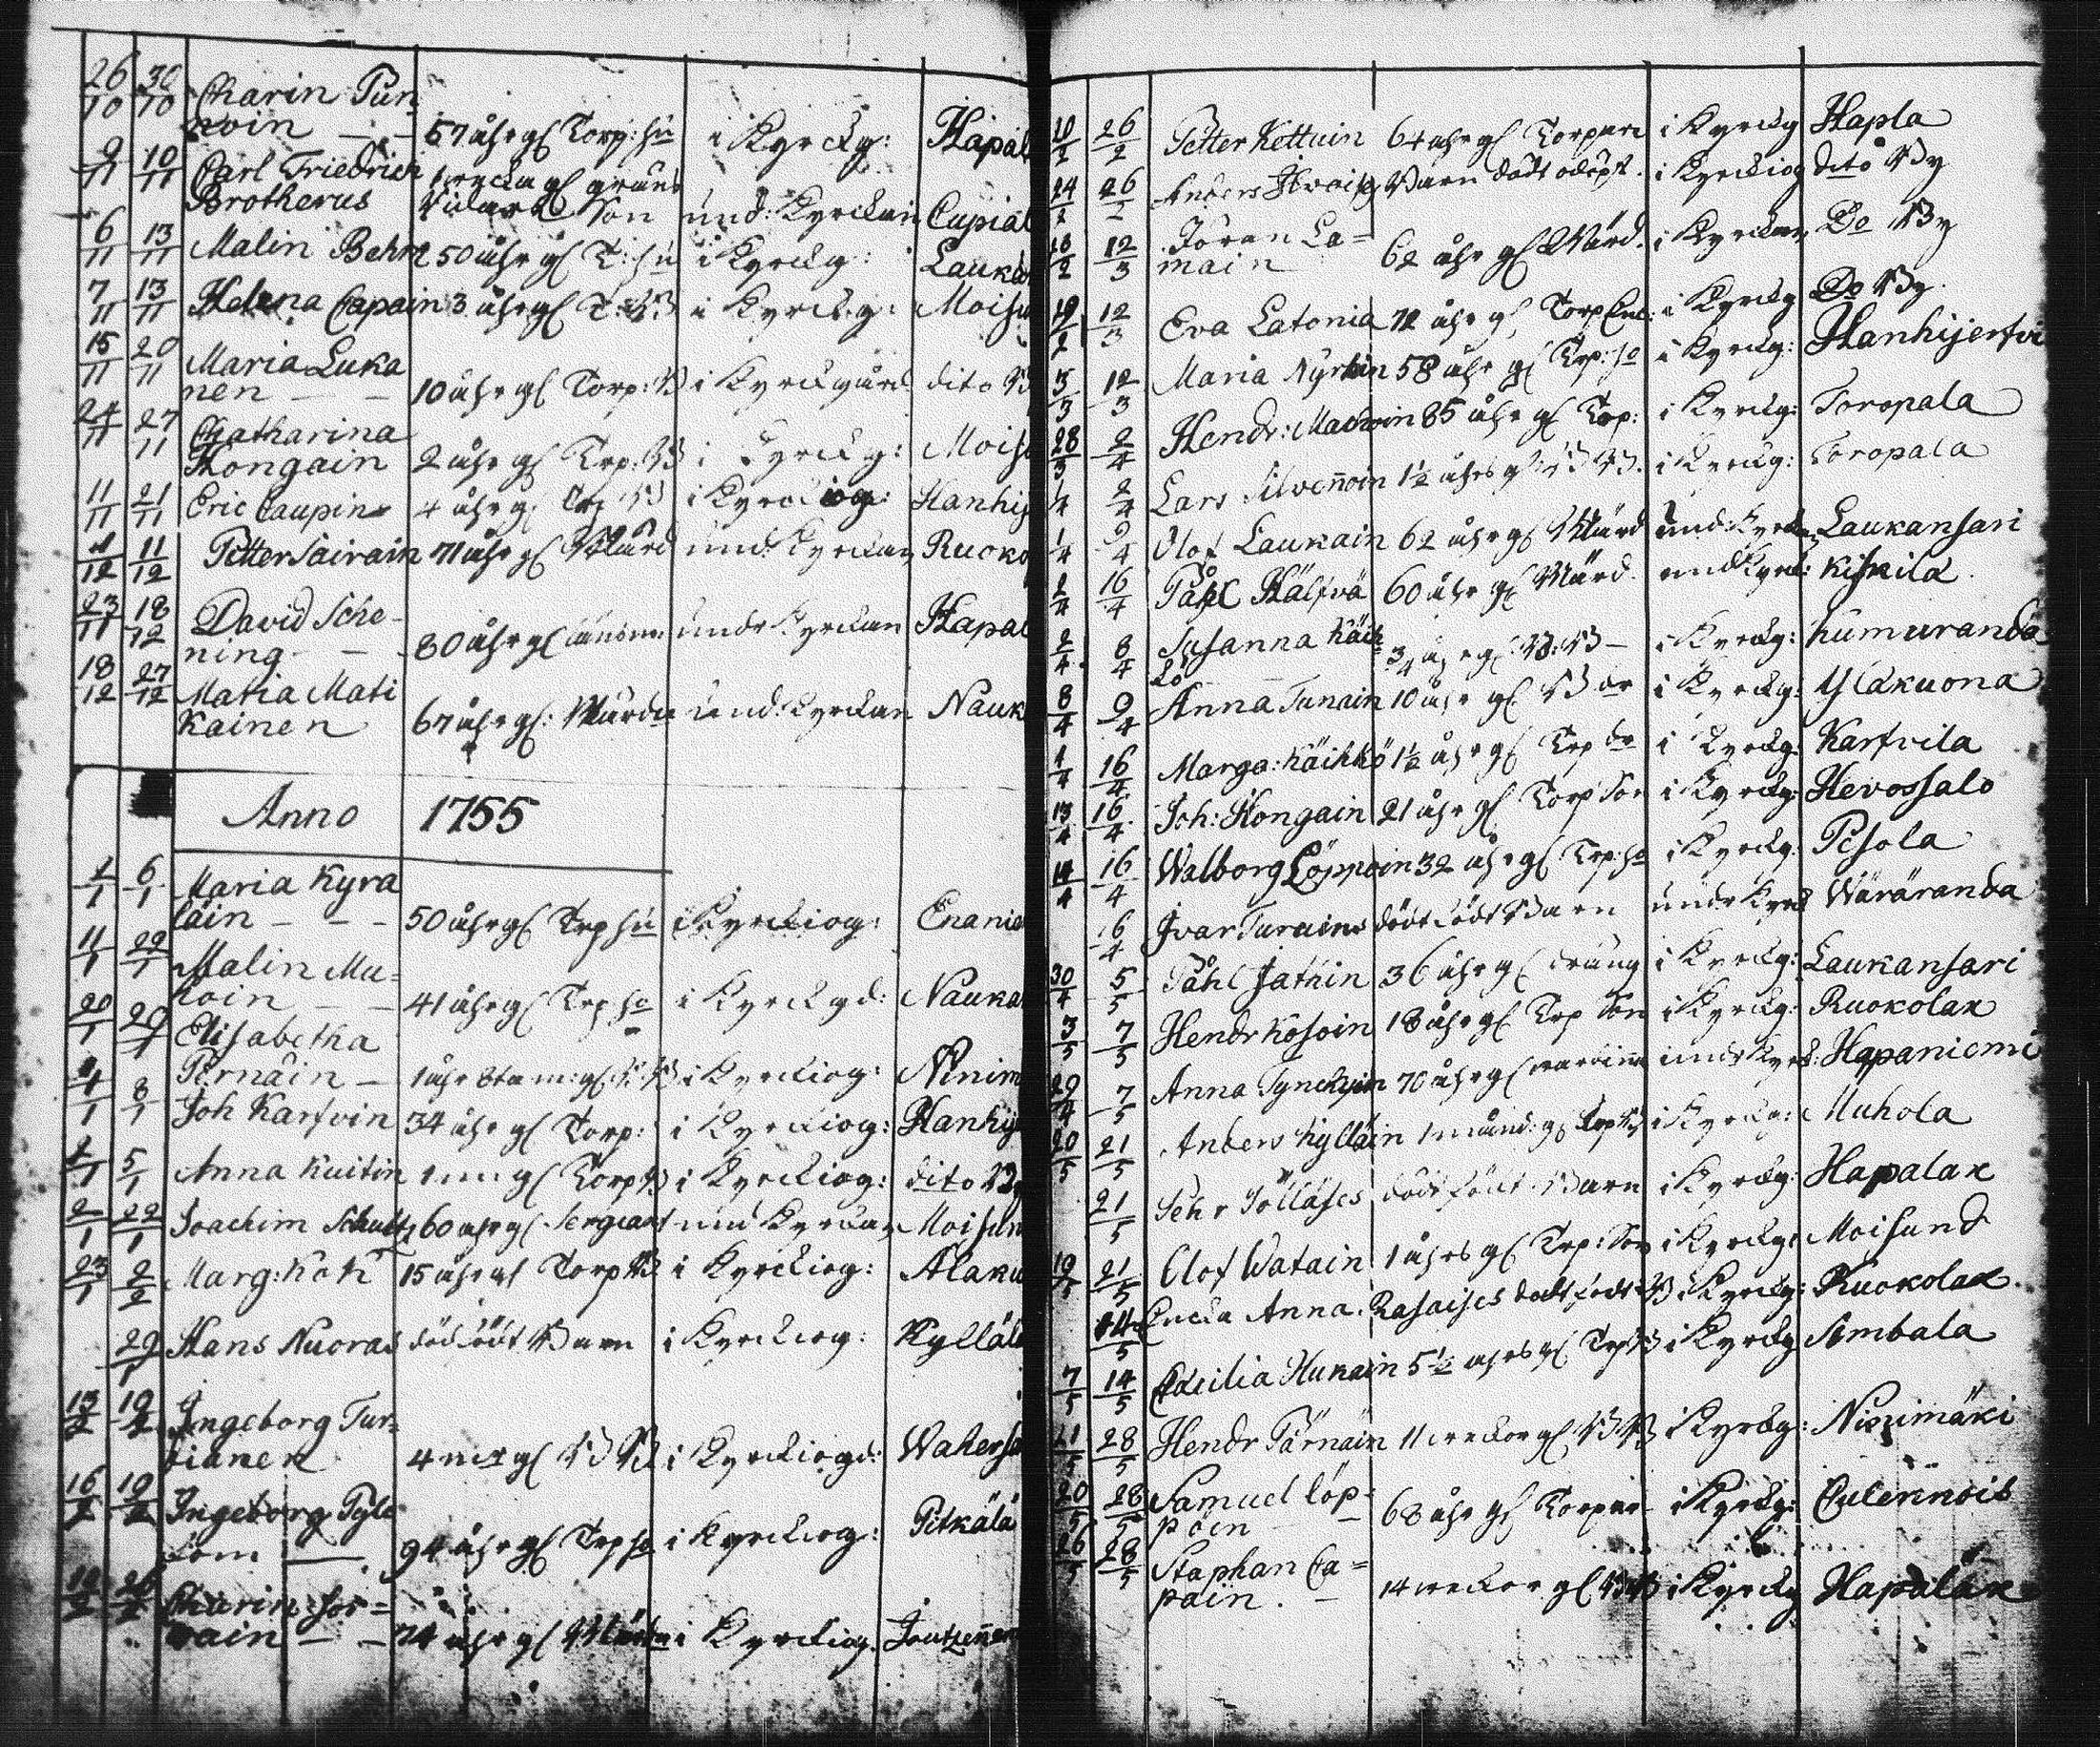 26/10 30/10 Charin Pun
noin — — 57 åhr gl Torp: hu i Kyrckg: Hapal
9/11 10/11 Carl Friedrich 1 wecka gl
Brotherus Son und: Kyrckan Cupial
6/11 13/11 Malin Behm 50 åhr gl T: hu i Kyrckg: Lauka
7/11 13/11 Helena Capain 3 åhr gl T: B i Kyrckg: Moisu
15/11 20/11 Maria Luka
nen — — 10 åhr gl Torp: B i Kyrckgård dito B
24/11 27/11 Chatharina
Hongain 2 åhr gl Trp: B i Kyrckg: Mois
11/11 21/11 Eric Caupin 4 åhr gl Trp B i Kyrckiog: Hanhij
11/12 Petter Sairain 71 åhr gl Wärd und: Kyrckan Ruoko
23/11 18/12 David Sche-
ning — 80 åhr gl under Kyrckan Hapal
18/12 27/12 Maria Mati
kainen 67 åhr gl: Wärdin und: Kyrckan Nauk
Anno 1755
1/1 6/1 Maria Kyra
läin — — — 50 åhr gl Trp hu i Kyrckiog: Enanie
11/1 22/1 Malin Mu=
hoin — — 41 åhr gl Trp ho i Kyrckgd: Nauka
20/1 29/1 Elisabetha
Pernäin — 1 åhr 8ta m: gl B i Kyrckiog: Ninim
4/1 8/1 Joh Karfvin 34 åhr gl Torp: i Kyrckiog: Hanhij
1/1 5/1 Anna Kuitin 1 m gl Torp B i Kyrckiog: dito By
2/1 22/1 Joachim Schultz 60 åhr gl Sergeant und Kyrckan Moisun
23/1 2/2 Marg: Koh 15 åhr gl Torp B i Kyrckiog: Alaku
29/1 Hans Nuoras död född Barn i Kyrckiog: Kylläl
13/2 19/2 Ingeborg Tur-
tianen 4 m gl B i Kyrckiogd: Wahersa
16/2 19/2 Ingeborg Pyle
94 åhr gl Trp ho i Kyrckiog: Pitkälä
19/2 26/2 Charin Sor=
wain — — 74 åhr gl Wärdin i Kyrckiog. Joutzennen
10/2 26/2 Petter Kettuin 64 åhr gl Torpare i Kyrckg Hapla
24/2 26/2 Anders Barn dödt odöpt. i Kyrckiog dito By
18/2 12/3 Jöran La=
main 62 åhr gl Wärd. i Kyrckan Do By
19/2 12/3 Eva Latonia 72 åhr gl Torp Enk: i Kyrckg Do By.
5/3 12/3 Maria Nyrhin 58 åhr gl Trp: ho i Kyrckg: Hanhijerfvi
28/3 2/4 Hendr: Machoin 85 åhr gl Trp: i Kyrckg: Toropala
1/4 2/4 Lars Silvennoin 1½ åhrs gl B B. i Kyrckg: Toropala
1/4 9/4 Olof Laukain 62 åhr gl Wärd und: Kyrckan Laukansari
2/4 16/4 Påhl Hälfvä 60 åhr gl Wärd. und Kyrck: Kiskila
2/4 8/4 Susanna Käch
kö — 3/4 åhr gl B: B — i Kyrckg: Kumuranda
8/4 9/4 Anna Tunain 10 åhr gl B dr i Kyrckg: Ylakuona
4/4 16/4 Marga: Käihkö 1½ åhr gl Trp dr i Kyrckg: Karfvila
13/4 16/4 Joh: Hongain 21 åhr gl Torp Son i Kyrckg: Hevossalo
14/4 16/4 Walborg Löppoin 32 åhr gl Trp: ho i Kyrckg: Pesola
6/4 Ivar Turuines dödt födt Barn under Kyrck Wäräranda
30/4 5/5 Påhl Jathin 36 åhr gl dräng i Kyrckg: Laukansari
3/5 7/5 Hendr Kosoin 18 åhr gl Trp Son i Kyrckg: Ruokolax
29/4 7/5 Anna Tynckyin 70 åhr gl wärdinna under Kyrck: Hapaniemi
20/5 21/5 Anders Kylläin 1 månd: gl Trp B i Kyrckg: Muhola
21/5 Pehr Pölläses dödt födt Barn i Kyrckg: Hapalax
19/5 21/5 Olof Watain 1 åhrs gl Trp: Son i Kyrckg: Moisund
14/5 Enckia Anna Rasaises dödt födt B i Kyrckg: Ruokolax.
7/5 14/5 Cæcilia Hukain 5½ åhrs gl Trp B i Kyrckg Simbala
21/5 28/5 Hendr Pärnäin 11 weckor gl: B B i Kyrckg: Ninimäki
20/5 28/5 Samuel Löp-
pöin — 68 åhr gl Torpar i Kyrckg: Culennois
26/5 28/5 Staphan Ca=
pain. — 14 weckor gl B B i Kyrckg Hapalax